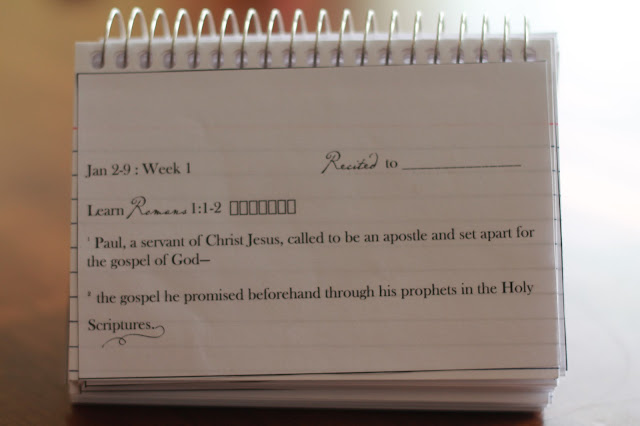 Jan 2-9 : Week 1 Recited to ____________
Learn Romans 1:1-2 ▯▯▯▯▯▯▯
¹ Paul, a servant of Christ Jesus, called to be an apostle and set apart for
the gospel of God—
² the gospel he promised beforehand through his prophets in the Holy
Scriptures.